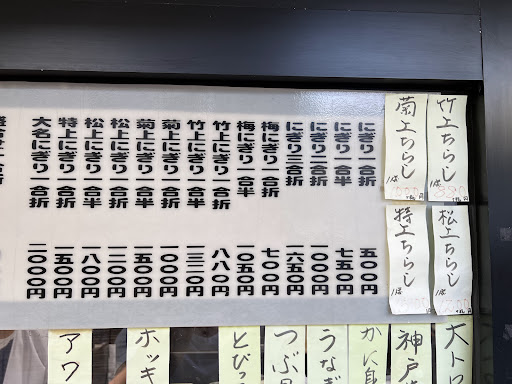 竹上ちらし
1.5
菊上ちらし
1.5
松上ちらし
特上ちらし
にぎり一合折 五〇〇円
にぎり一合半 七五〇円
にぎり二合折 一〇〇〇円
にぎり三合折 一六五〇円
梅にぎり一合折 七〇〇円
梅にぎり一合半 一〇五〇円
竹上にぎり一合折 八八〇円
竹上にぎり一合半 一三二〇円
菊上にぎり一合折 一〇〇〇円
菊上にぎり一合半 一五〇〇円
松上にぎり一合折 一二〇〇円
松上にぎり一合半 一八〇〇円
特上にぎり一合折 一五〇〇円
大名にぎり一合折 二〇〇〇円
大トロ
神戸
かに身
うなぎ
つぶ貝
とびっ
ホッキ
アワ